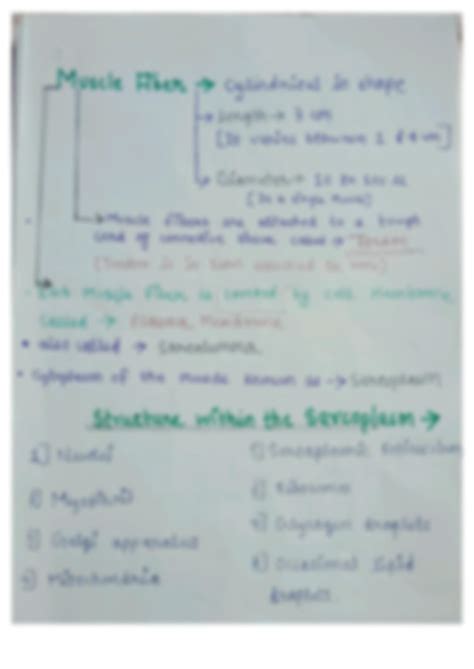 Muscle Fiber → Cylindrical in shape
→ Length → 3 cm
[It varies between 1 & 4 cm]
→ Diameter →
→ Muscle fibers are attached to a tough
cord of connective tissue called → Tendon
(Tendon is in turn attached to bone)
- Each Muscle fiber is covered by cell Membrane
called → Plasma Membrane
• also called → Sarcolemma
• Cytoplasm of the muscle known as → Sarcoplasm
Structure within the Sarcoplasm →
1) Nuclei
2) Myofibril
3) Golgi apparatus
4) Mitochondria
5) Sarcoplasmic Reticulum
6) Ribosomes
7) Glycogen droplets
8) Occasional lipid
droplets.